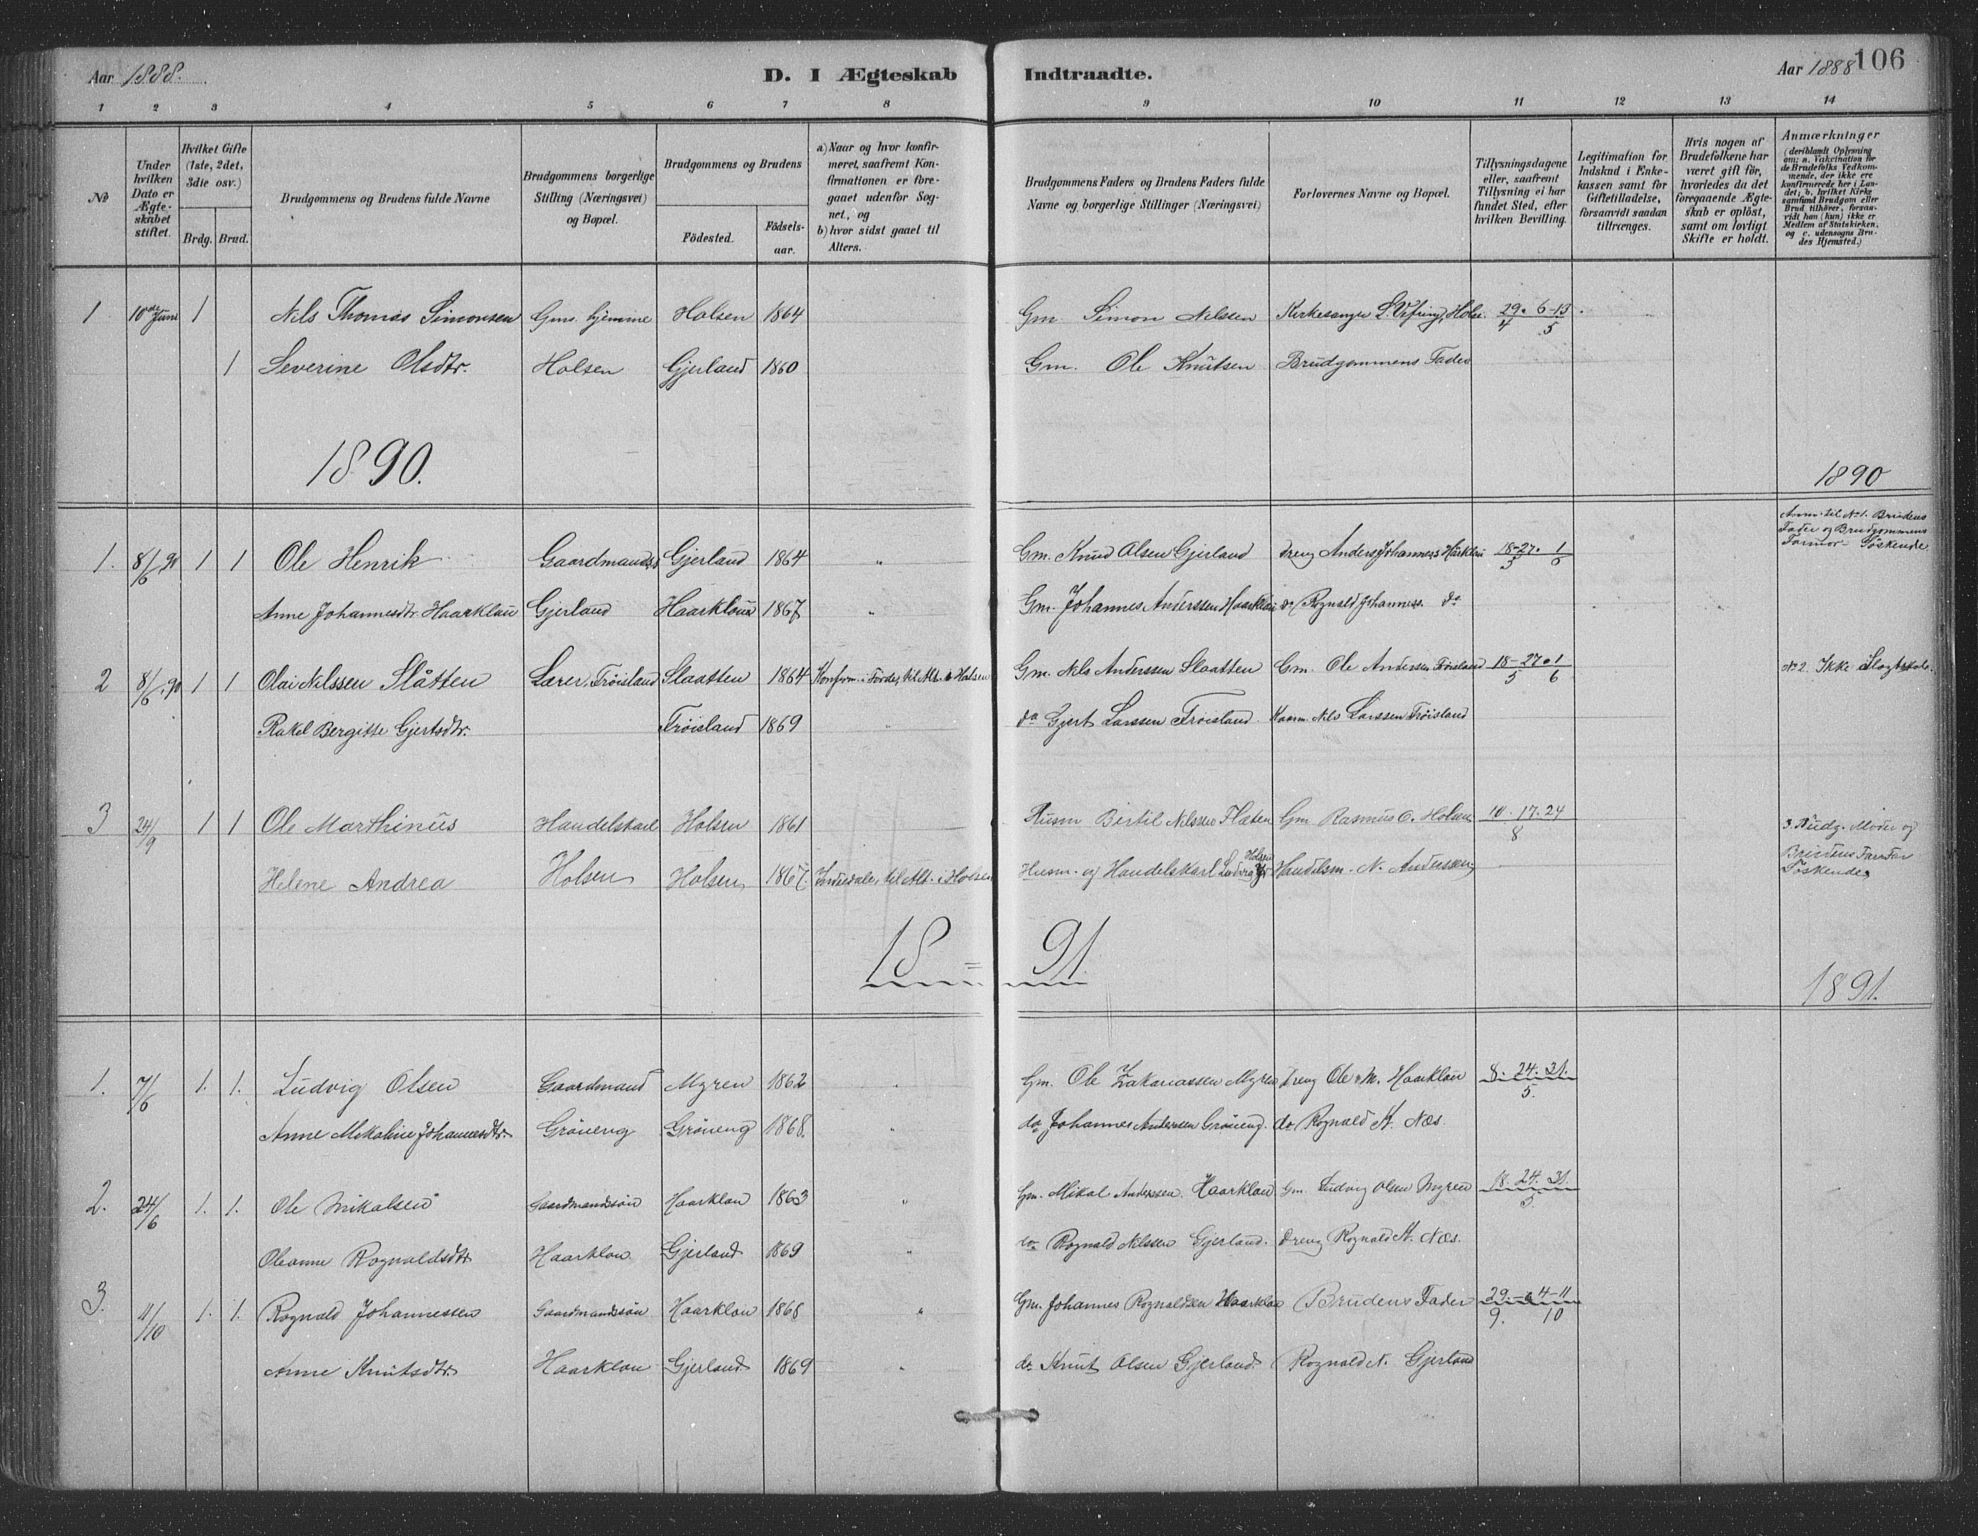 Aar 1888. D. I Ægteskab Indtraadte. Aar 1888 106
1 2 3 4 5 6 7 8 9 10 11 12 13 14
No
Under hvilken Dato er Ægteskabet stiftet.
Hvilket Gifte (1ste, 2det, 3die osv.)
Brdg. Brud.
Brudgommens og Brudens fulde Navne
Brudgommens borgerlige Stilling (Næringsvei) og Bopæl.
Brudgommens og Brudens
Fødested. Fødselsaar.
a) Naar og hvor konfirmeret, saafremt Konfirmationen er foregaaet udenfor Sognet, og
b) hvor sidst gaaet til Alters.
Brudgommens Faders og Brudens Faders fulde Navne og borgerlige Stillinger (Næringsvei)
Forlovernes Navne og Bopæl.
Tillysningsdagene eller, saafremt Tillysning ei har fundet Sted, efter hvilken Bevilling.
Legitimation for Indskud i Enkekassen samt for Giftetilladelse, forsaavidt saadan tiltrænges.
Hvis nogen af Brudefolkene har været gift før, hvorledes da det foregaaende Ægteskab er opløst, samt om lovligt Skifte er holdt.
Anmærkninger
(deriblandt Oplysning om: a. Vakcination for de Brudefolks Vedkommende, der ikke ere konfirmerede her i Landet; b. hvilket Kirkesamfund Brudgom eller Brud tilhører, forsaavidt han (hun) ikke er Medlem af Statskirken, og c. udensogns Brudes Hjemsted.)
1 10de Juni 1 Nils Thomas Simonsen Gms. hjemme Holsen 1864 Gm Simon Nilssen Kirkesanger 29. 6-13
4 5
1 Severine Olsdtr. Holsen Gjerland 1860 Gm. Ole Knutsen Brudgommens Fader
1890. 1890
Anm. til No 1. Brudens
Fader og Brudgommens
Farmor Søskende
1. 8/6 90 1 1 Ole Henrik Gaardmands Gjerland 1864 " Gm. Knud Olsen Gjerland Dreng Anders Johanness Harklau 18-27. 1
5 6
Anne Johannesdtr Haarklau Gjerland Haarklau 1867 " Gm. Johannes Anderssen Haarklau do Rognald Johanness. do
2 8/6 90 1 1 Olai Nilssen Slåtten Lærer, Trøisland Slaatten 1864 Konfirm. i Førde, til Alt. i Holsen Gm. Nils Anderssen Slaatten Gm. Ole Andersen Trøisland 18-27. 1 No 2. Ikke Slægtskab.
5 6
Rakel Bergitte Gjertsdtr. Trøisland 1869 " do Gjert Larssen Trøisland Kaarm. Nils Larssen Trøisland
3 24/9 1 1 Ole Marthinus Handelskarl Holsen 1861 Husm Bertil Nilssen Flæten Gm Rasmus O. Holsen 10. 17. 24
8
3. Brudg. Moder og
Brudens Farfar
Søskende
Helene Andrea Holsen Holsen 1867. til Alt. i Holsen Husm. og Handelskarl Ludvig Holsen Handelsm. N. Anderssen
18=91. 1891.
1. 7/6 1. 1. Ludvig Olsen Gaardmand Myren 1862 " Gm. Ole Zakariassen Myren Dreng Ole M. Haarklau 8. 24. 31.
5.
Anne Mikaline Johannesdtr. Grøneng Grøneng 1868. " do Johannes Anderssen Grøneng. do Rognald A. Næs.
2. 24/6 1. 1. Ole Mikalsen Gaardmandssøn Haarklau 1863 " Gm. Mikal Anderssen Haarklau Gm. Ludvig Olsen Myren 18. 24. 31.
5
Oleanne Rognaldsdtr Haarklau Gjerland 1869 " do Rognald Nilssen Gjerland. Dreng Rognald A. Næs.
3. 11/10 1. 1. Rognald Johannessen Gaardmandssøn Haarklau 1868 " Gm. Johannes Rognaldsen Haarklau Brudens Fader 29. - 4-11
9. 10
Anne Knutsdtr. Haarklau Gjerland 1869 " do Knut Olsen Gjerland. Rognald N. Gjerland